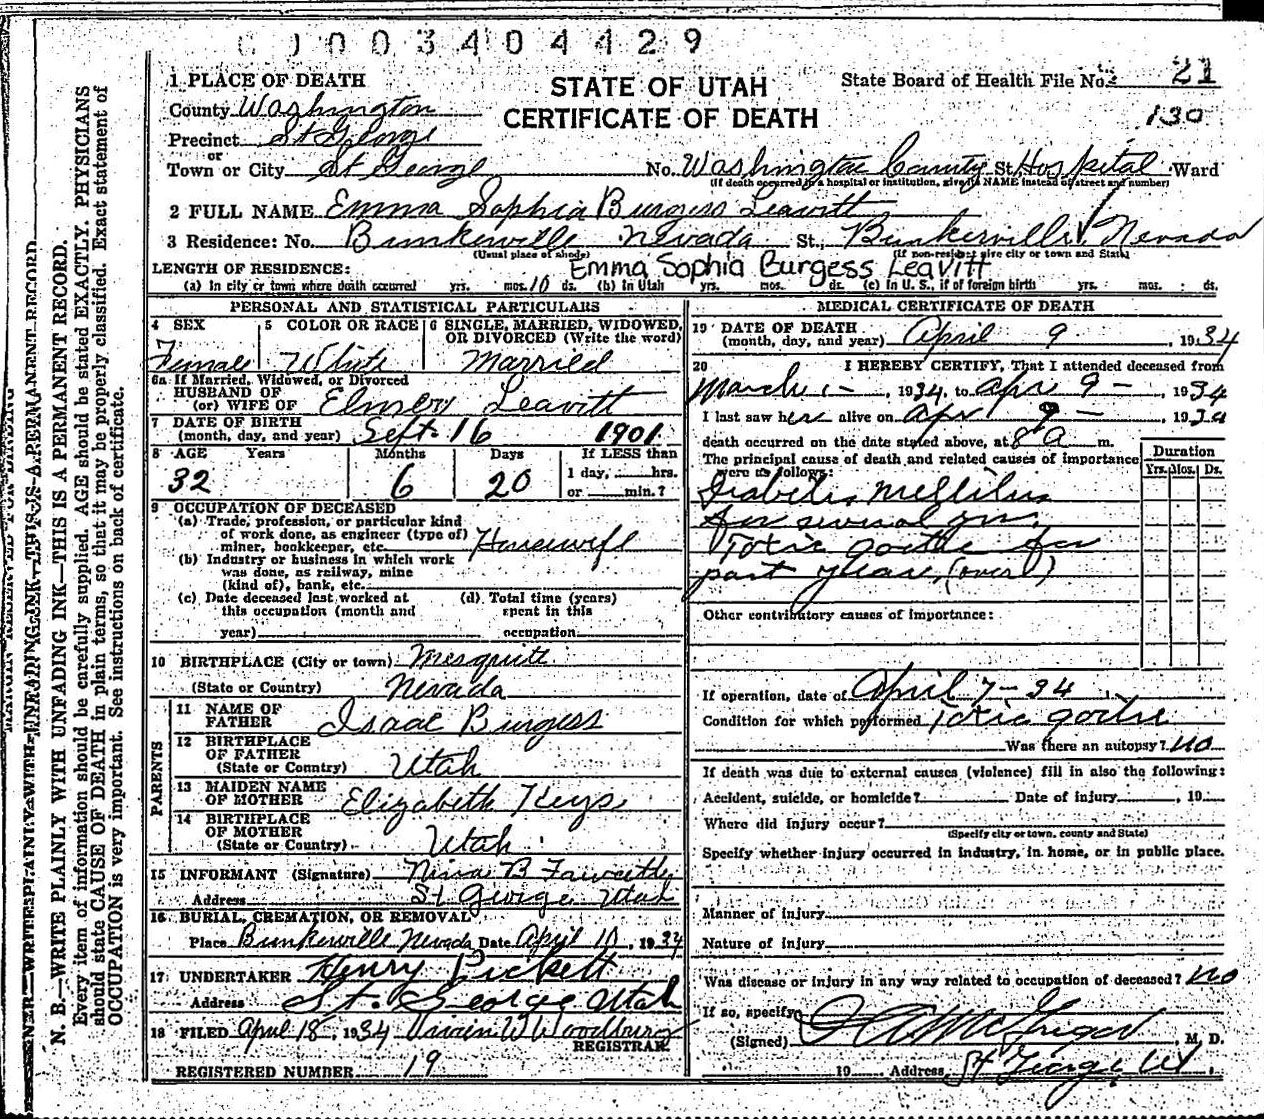 0 0 0 3 4 0 4 4 2 9
1 PLACE OF DEATH
STATE OF UTAH
CERTIFICATE OF DEATH
State Board of Health File No. 21
130
County Washington
Precinct St George
or
Town or City St George No. Washington County St. Hospital Ward
(If death occurred in a hospital or institution, give its NAME instead of street and number)
2 FULL NAME Emma Sophia Burgess Leavitt
3 Residence: No. Bunkerville Nevada St., Bunkerville, Nevada
(Usual place of abode) (If non-resident give city or town and State)
LENGTH OF RESIDENCE: Emma Sophia Burgess Leavitt
(a) In city or town where death occurred yrs. mos. 10 ds. (b) In Utah yrs. mos. ds. (c) In U. S., if of foreign birth yrs. mos. ds.
PERSONAL AND STATISTICAL PARTICULARS
4 SEX Female
5 COLOR OR RACE White
6 SINGLE, MARRIED, WIDOWED, OR DIVORCED (Write the word) Married
6a If Married, Widowed, or Divorced
HUSBAND OF
(or) WIFE OF Elmer Leavitt
7 DATE OF BIRTH
(month, day, and year) Sept. 16 1901
8 AGE Years Months Days If LESS than
32 6 20 1 day, hrs.
or min.?
9 OCCUPATION OF DECEASED
(a) Trade, profession, or particular kind
of work done, as engineer (type of)
miner, bookkeeper, etc. Housewife
(b) Industry or business in which work
was done, as railway, mine
(kind of), bank, etc.
(c) Date deceased last worked at
this occupation (month and
year)
(d) Total time (years)
spent in this
occupation
10 BIRTHPLACE (City or town) Mesquite
(State or Country) Nevada
PARENTS
11 NAME OF
FATHER Isaac Burgess
12 BIRTHPLACE
OF FATHER
(State or Country) Utah
13 MAIDEN NAME
OF MOTHER Elizabeth Keys
14 BIRTHPLACE
OF MOTHER
(State or Country) Utah
15 INFORMANT (Signature) Nina B
Address St George Utah
16 BURIAL, CREMATION, OR REMOVAL
Place Bunkerville Nevada Date April 10, 1934
17 UNDERTAKER Henry Pickett
Address St. George Utah
18 FILED April 18, 1934 Vivian W Woodbury
REGISTRAR
REGISTERED NUMBER 19
MEDICAL CERTIFICATE OF DEATH
19 DATE OF DEATH
(month, day, and year) April 9, 1934
20 I HEREBY CERTIFY, That I attended deceased from
March 1-, 1934, to Apr 9-, 1934
I last saw her alive on Apr 9-, 1934
death occurred on the date stated above, at 8 a m.
The principal cause of death and related causes of importance
were as follows:
Duration
Yrs. Mos. Ds.
Diabetis Mellitus
for several yrs.
Toxic goitre for
past year, (over)
Other contributory causes of importance:
If operation, date of April 7-34
Condition for which performed Toxic goitre
Was there an autopsy? no
If death was due to external causes (violence) fill in also the following:
Accident, suicide, or homicide? Date of injury, 19
Where did injury occur?
(Specify city or town, county and State)
Specify whether injury occurred in industry, in home, or in public place.
Manner of injury
Nature of injury
Was disease or injury in any way related to occupation of deceased? no
If so, specify
(Signed) McGregor, M. D.
19 Address St George, Ut
N. B.—WRITE PLAINLY WITH UNFADING INK—THIS IS A PERMANENT RECORD.
Every item of information should be carefully supplied. AGE should be stated EXACTLY. PHYSICIANS
should state CAUSE OF DEATH in plain terms, so that it may be properly classified. Exact statement of
OCCUPATION is very important. See instructions on back of certificate.